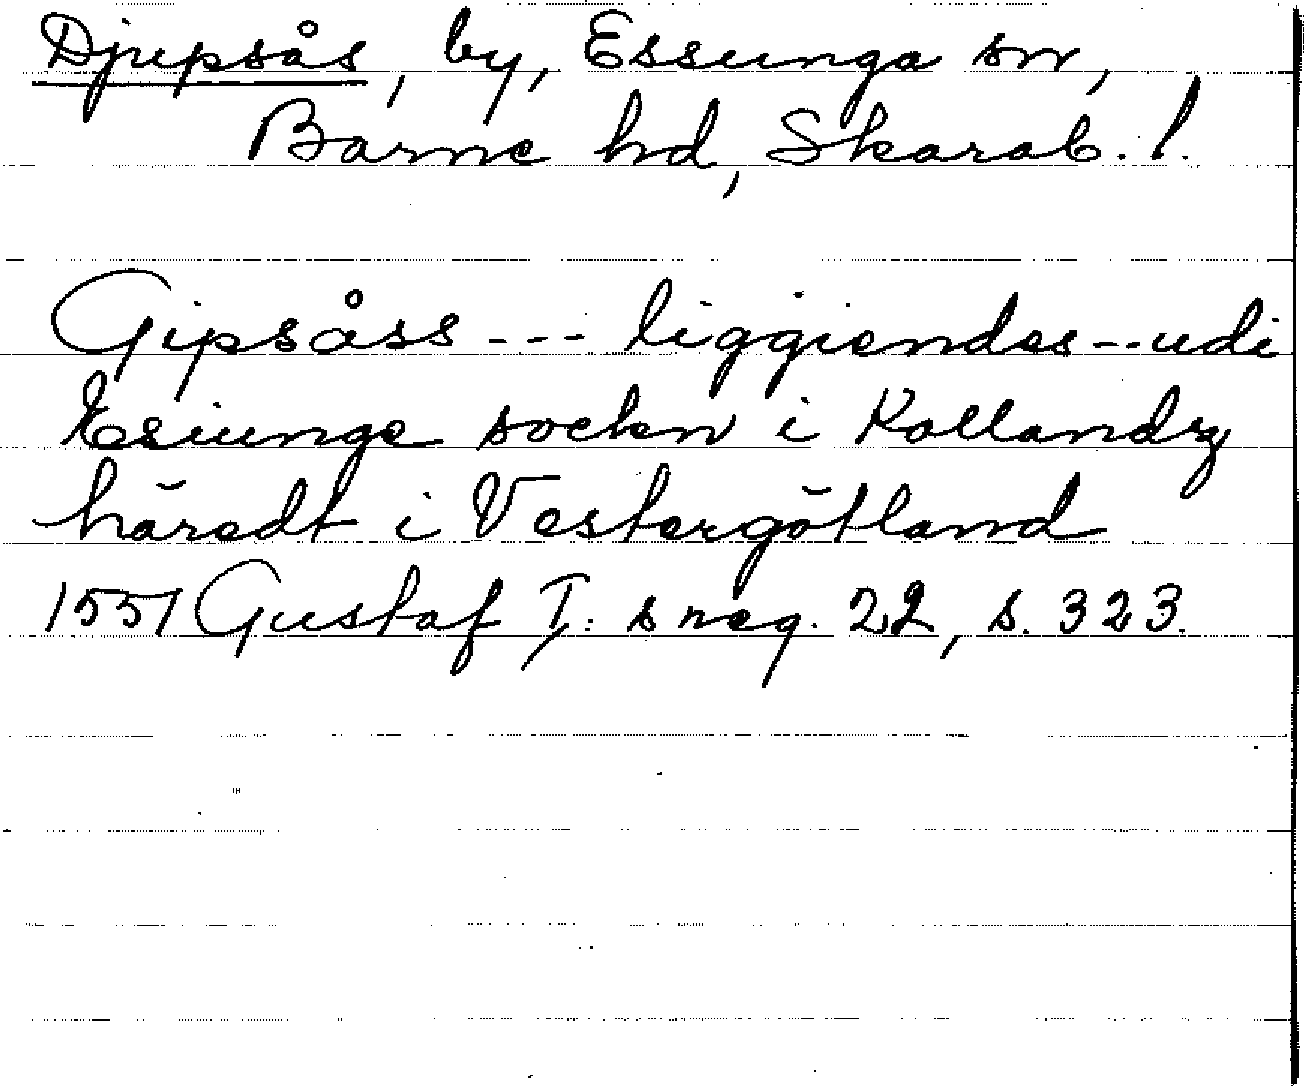 Djupsås, by, Essunga sn,
Barne hd, Skarab. l.
Gipsåss --- liggiendes -- udi
Esiunge sockn i Kollandz
häredt i Vestergötland
1551 Gustaf I:s reg. 22, s. 323.